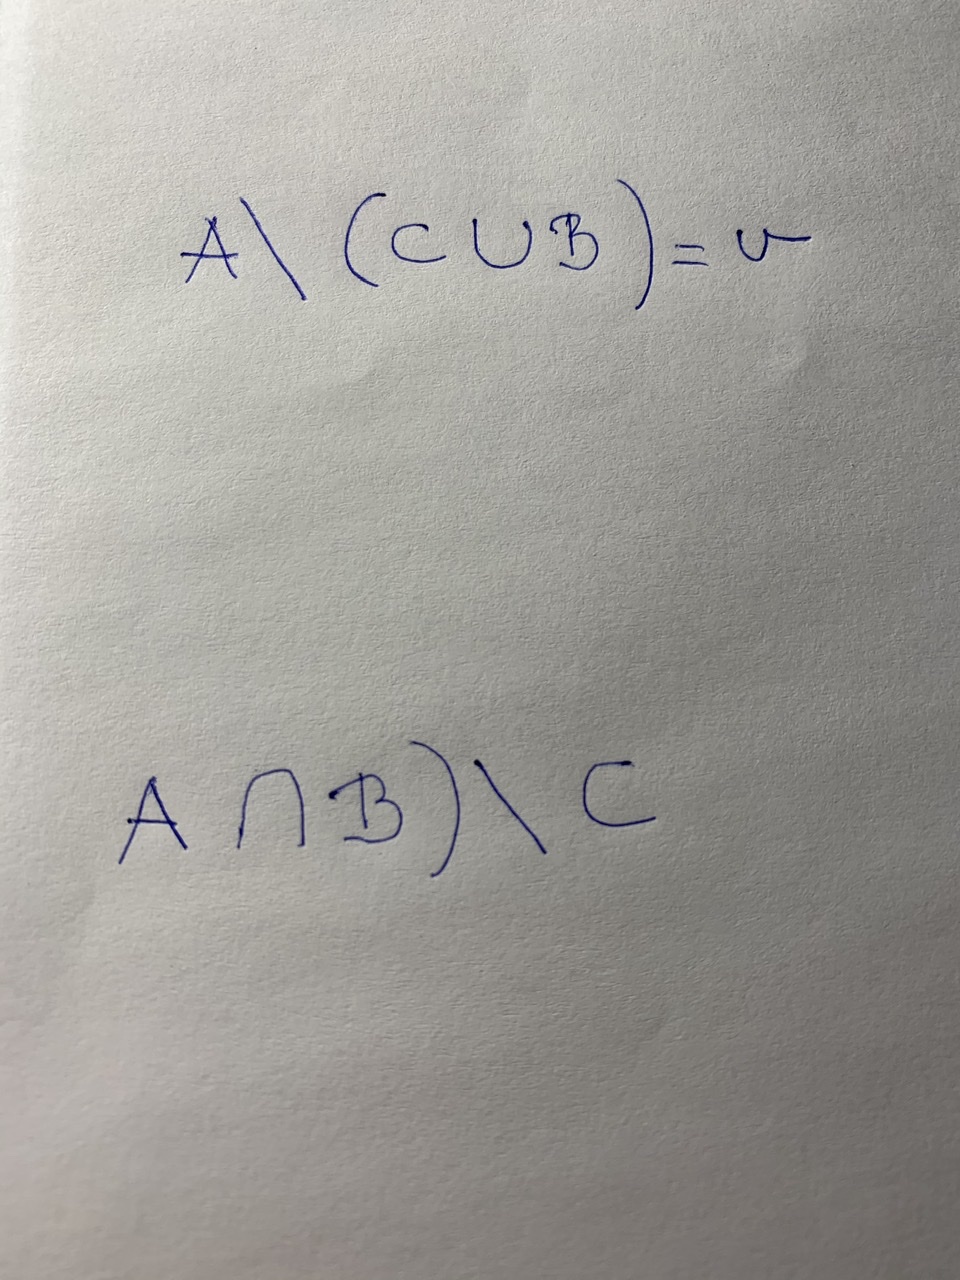 A \ (C ∪ B) = v
A ∩ B) \ C